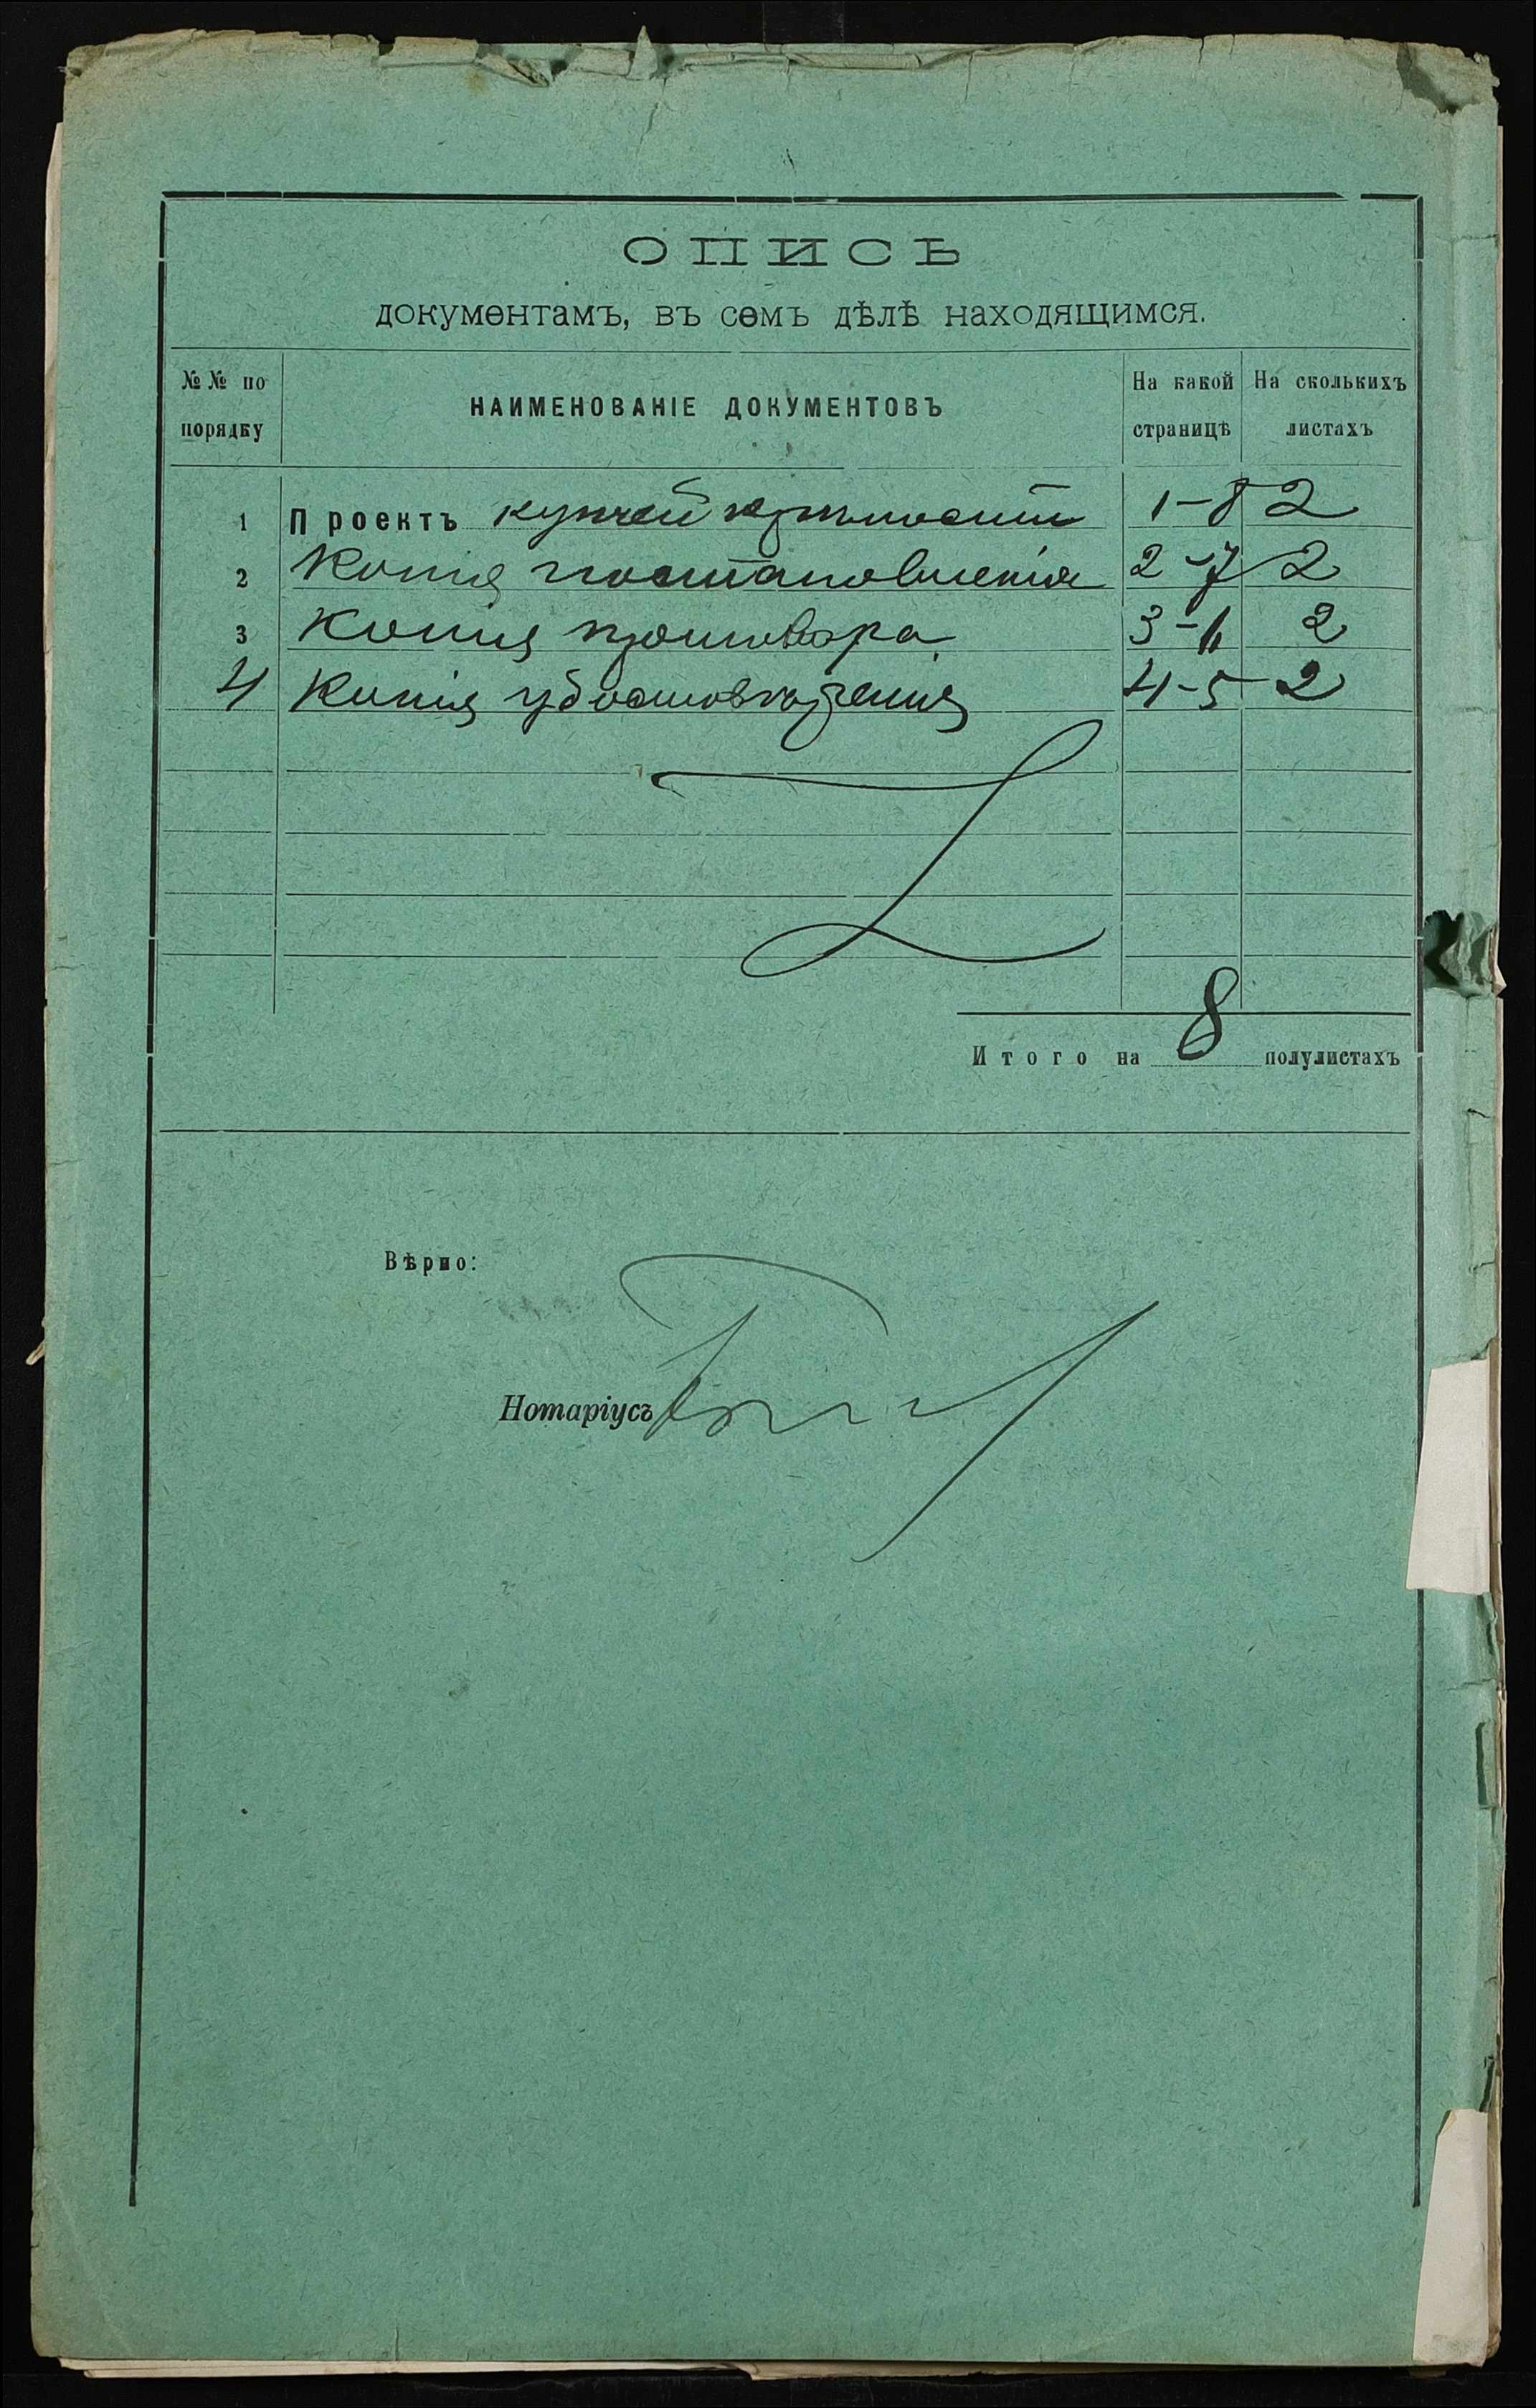 ОПИСЬ
документамъ, въ семъ дѣлѣ находящимся.
№№ по порядку
НАИМЕНОВАНІЕ ДОКУМЕНТОВЪ
На какой страницѣ
На сколькихъ листахъ
1 Проектъ купчей крѣпости 1-8 2
2 Копія постановленія 2-7 2
3 Копія приговора 3-6 2
4 Копія удостовѣренія 4-5 2
Итого на 8 полулистахъ
Вѣрно:
Нотаріусъ